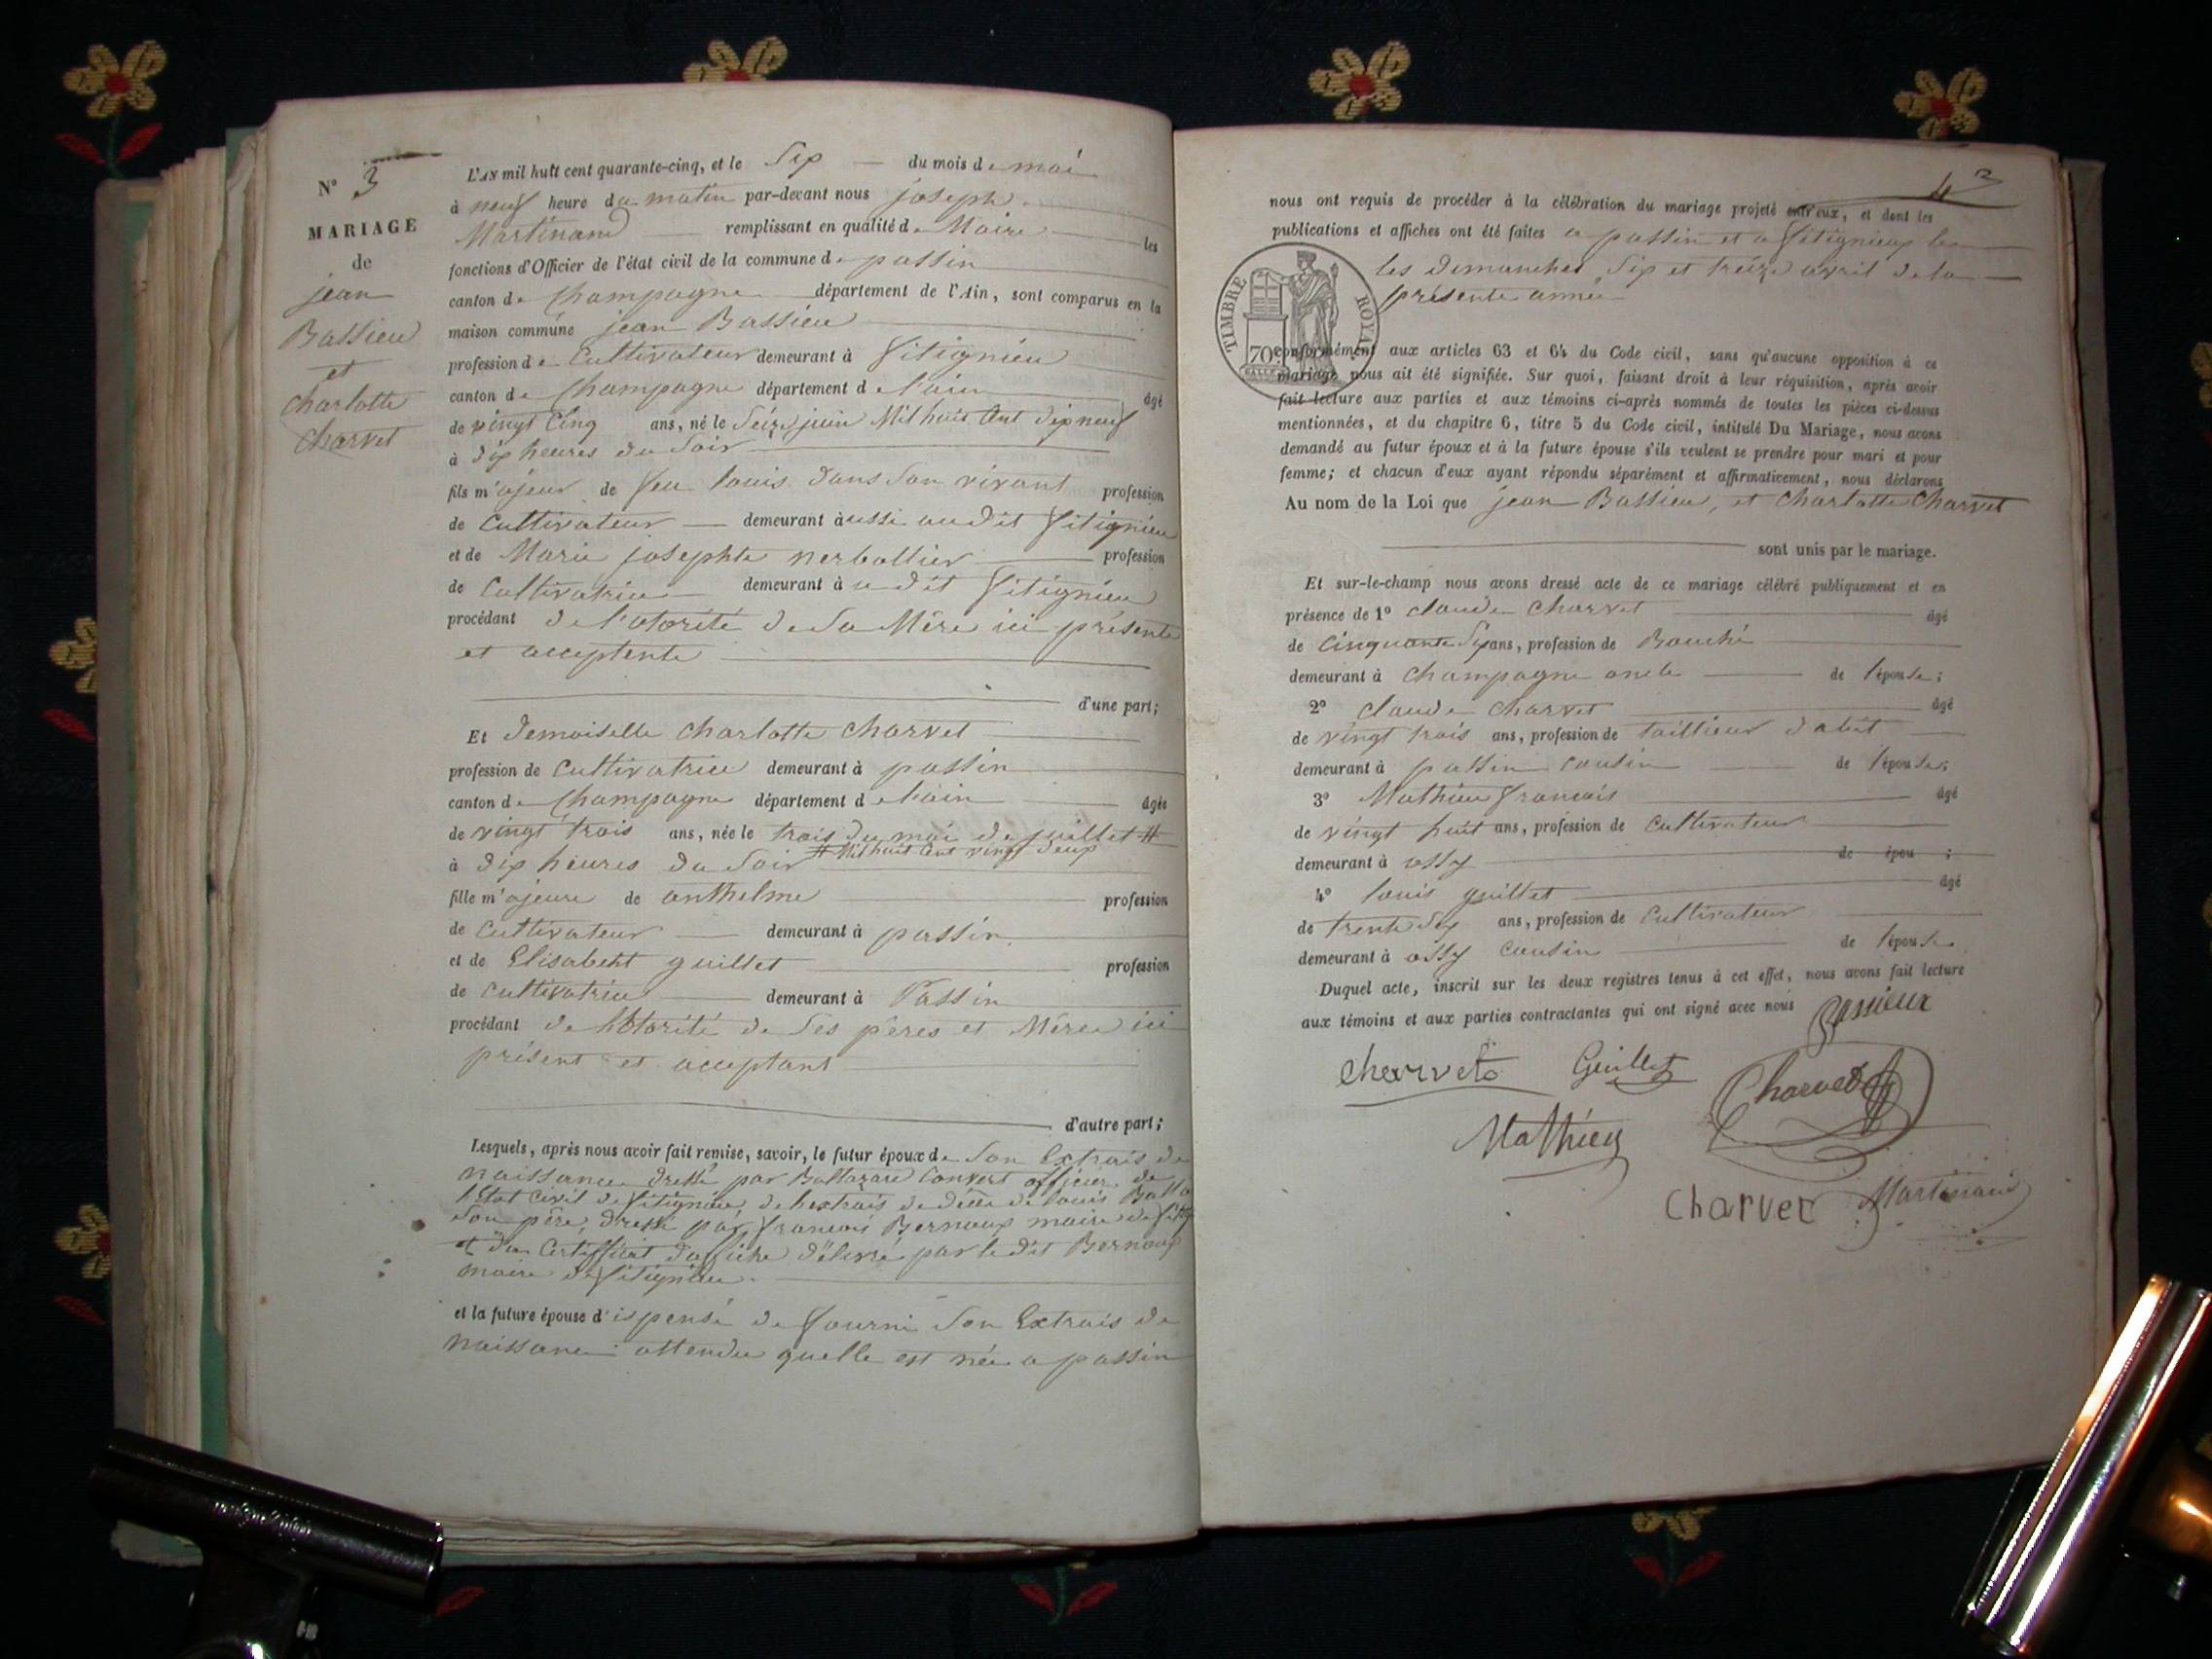 N° 3
MARIAGE
de
jean
Bassieu
et
charlotte
charvet
L'AN mil huit cent quarante-cinq, et le Six du mois de mai
à neuf heure du matin par-devant nous joseph
Martinand remplissant en qualité de Maire les
fonctions d'Officier de l'état civil de la commune de passin
canton de Champagne département de l'Ain, sont comparus en la
maison commune jean Bassieu
profession de Cultivateur demeurant à fitignieu
canton de Champagne département de l'ain âgé
de vingt Cinq ans, né le Seize juin Mil huit Cent dix neuf
à dix heures du Soir
fils majeur de feu louis dans Son vivant profession
de Cultivateur demeurant à aussi audit fitignieu
et de Marie josephte verbollier profession
de Cultivatrice demeurant à udit fitignieu
procédant de l'otorité de Sa Mère ici présente
et acceptente
d'une part;
Et demoiselle charlotte charvet
profession de Cultivatrice demeurant à passin
canton de Champagne département de l'ain âgée
de vingt trois ans, née le trois du moi de juillet #
# Mil huit Cent vingt deux
à dix heures du Soir
fille majeure de anthelme profession
de Cultivateur demeurant à passin
et de Elisabeht guillet profession
de Cultivatrice demeurant à Passin
procédant de l'otorité de Ses pères et Mères ici
présent et acceptant
d'autre part;
Lesquels, après nous avoir fait remise, savoir, le futur époux de Son Extrais de
naissance dressé par Baltazard Convert officier de
l'Etat Civil de fitignieu, de l'extrais de décé de louis
Son père, dressé par francois Bernoux maire de
et d'un Certifficat d'affiche délivré par le dit Bernoux
maire de fitignieu.
et la future épouse dispensé de fourni Son Extrais de
naissance attendu quelle est née a passin
nous ont requis de procéder à la célébration du mariage projeté entr'eux, et dont les
publications et affiches ont été faites a passin et a fitignieux
les dimanches Six et treize avril de la
présente année
TIMBRE ROYAL
70c
conformément aux articles 63 et 64 du Code civil, sans qu'aucune opposition à ce
mariage nous ait été signifiée. Sur quoi, faisant droit à leur réquisition, après avoir
fait lecture aux parties et aux témoins ci-après nommés de toutes les pièces ci-dessus
mentionnées, et du chapitre 6, titre 5 du Code civil, intitulé Du Mariage, nous avons
demandé au futur époux et à la future épouse s'ils veulent se prendre pour mari et pour
femme; et chacun d'eux ayant répondu séparément et affirmativement, nous déclarons
Au nom de la Loi que jean Bassieu, et Charlotte Charvet
sont unis par le mariage.
Et sur-le-champ nous avons dressé acte de ce mariage célébré publiquement et en
présence de 1° claude charvet âgé
de Cinquante Six ans, profession de Bouché
demeurant à champagne oncle de l'épouse;
2° claude charvet âgé
de vingt trois ans, profession de taillieur d'abit
demeurant à passin Cousin de l'épouse;
3° Mathieu francois âgé
de vingt huit ans, profession de Cultivateur
demeurant à ossy de épou ;
4° louis guillet âgé
de trente Six ans, profession de Cultivateur
demeurant à ossy Cousin de l'épouse
Duquel acte, inscrit sur les deux registres tenus à cet effet, nous avons fait lecture
aux témoins et aux parties contractantes qui ont signé avec nous Bassieux
charvet Guillet Charvet
Mathieu
Charvet Martinand